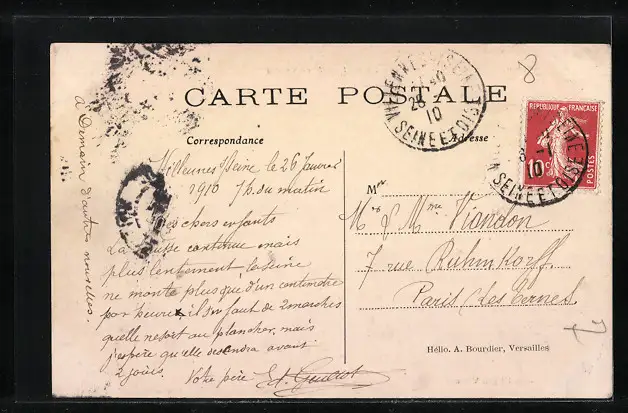 CARTE POSTALE
Correspondance
Adresse
Villennes s/Seine le 26 Janvier
1910 7h. du matin
Mes chers enfants
La crue continue mais
plus lentement la seine
ne monte plus que d'un centimètre
par heure il s'en faut de 2 marches
qu'elle ne soit au plancher, mais
j'espère qu'elle descendra avant
2 jours. Votre père
à Demain d'autres nouvelles.
M
Mr & Mme Viandon
7 rue Ruhmkorff
Paris Les Ternes
Hélio. A. Bourdier, Versailles
REPUBLIQUE FRANÇAISE
10c
POSTES
SEINE ET OISE
26
10
SEINE ET OISE
10
8